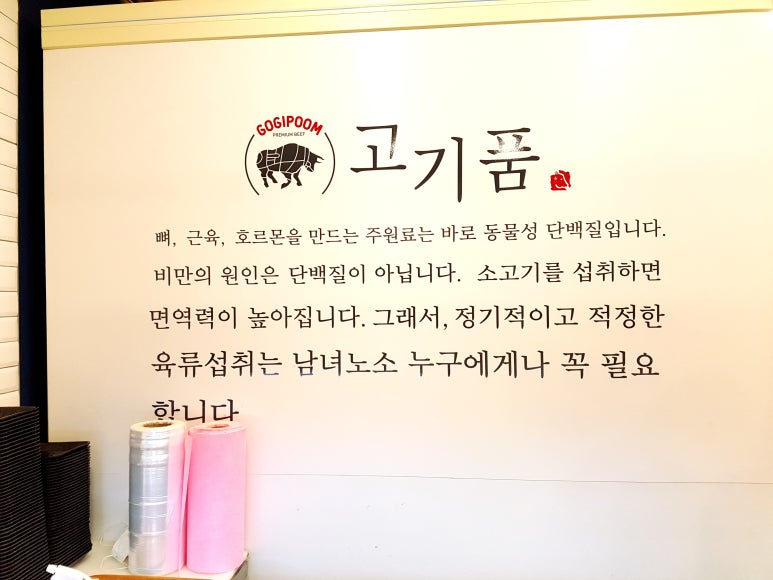 GOGIPOOM
PREMIUM BEEF
고기품
뼈, 근육, 호르몬을 만드는 주원료는 바로 동물성 단백질입니다.
비만의 원인은 단백질이 아닙니다. 소고기를 섭취하면
면역력이 높아집니다. 그래서, 정기적이고 적정한
육류섭취는 남녀노소 누구에게나 꼭 필요
합니다